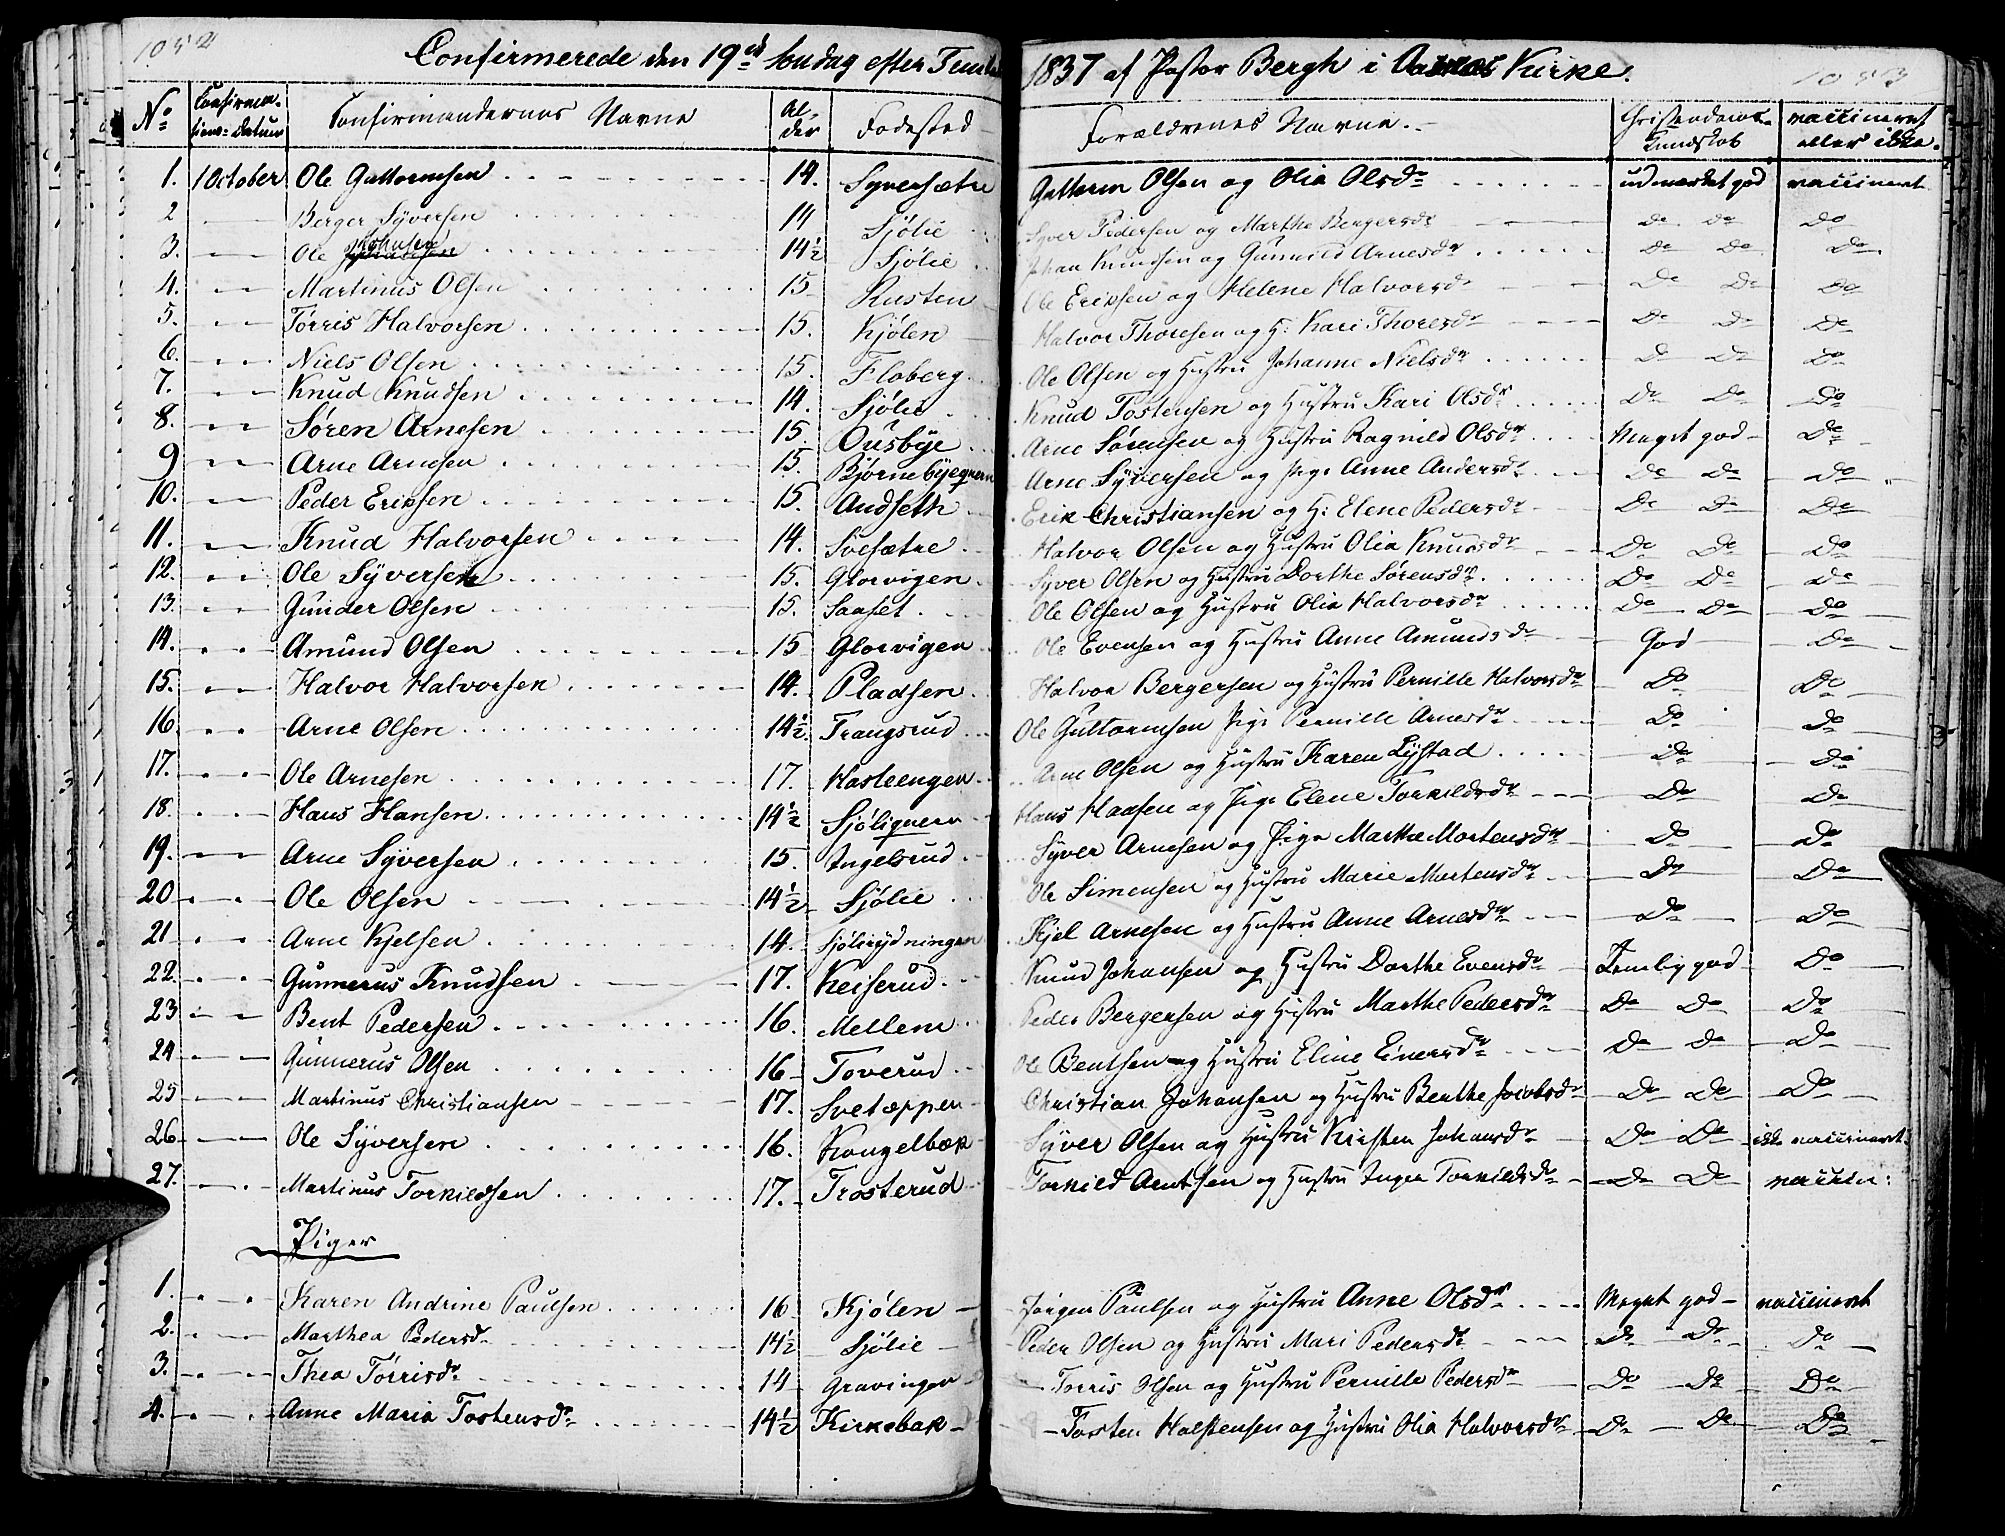 1052
Confirmerede den 19de Søndag efter
1837 af Pastor Bergh i Kirke.
1053
No Confirmations-Datum Confirmandernes Navne Alder Fødested Forældrenes Navne Christendoms-Kundskab vaccineret eller ikke.
1. 1 October Ole Guttormsen 14. Syversætre Guttorm Olsen og Olia Olsdr udmærket god vaccineret
2 Berger Syversen 14 Sjølie Syver Pedersen og Marthe Bergersdr Do Do Do
3. Ole Johansen 14½ Sjølie Johan Knudsen og Gunnild Arnesdr Do Do Do
4. Martinus Olsen 15 Rusten Ole Eriksen og Helene Halvorsdr Do Do Do
5. Tørris Halvorsen 15. Kjølen Halvor Thoresen og H: Kari Thoresdr Do Do Do
6. Niels Olsen 15. Floberg Ole Olsen og Hustru Johanne Nielsdr Do Do Do
7. Knud Knudsen 14. Sjølie Knud Tostensen og Hustru Kari Olsdr Do Do Do
8. Søren Arnesen 15. Ousbye Arne Sørensen og Hustru Ragnild Olsdr Meget god Do
9 Arne Arnesen 15. Bjørnebyeqnern Arne Syversen og Pige Anne Andersdr Do Do Do
10. Peder Eriksen 15. Andseth Erik Christiansen og H: Elene Pedersdr Do Do Do
11. Knud Halvorsen 14. Svesætre Halvor Olsen og Hustru Olia Knudsdr Do Do Do
12. Ole Syversen 15. Glorvigen Syver Olsen og Hustru Dorthe Sørensdr Do Do Do
13. Gunder Olsen 15. Saaset Ole Olsen og Hustru Olia Halvorsdr Do Do Do
14. Amund Olsen 15 Glorvigen Ole Evensen og Hustru Anne Amundsdr God Do
15. Halvor Halvorsen 14. Pladsen Halvor Bergersen og Hustru Pernille Halvorsdr Do Do
16. Arne Olsen 14½ Trangsrud Ole Guttormsen Pige Pernille Arnesdr Do Do
17. Ole Arnesen 17. Hasleengen Arne Olsen og Hustru Karen Lystad Do Do
18. Hans Hansen 14½ Sjøliqnern Hans Hansen og Pige Elene Torkildsdr Do Do
19. Arne Syversen 15. Ingelsrud Syver Arnesen og Pige Marthe Mortensdr Do Do
20 Ole Olsen 14½ Sjølie Ole Simensen og Hustru Marie Mortensdr Do Do
21 Arne Kjelsen 14. Sjølirydningen Kjel Arnesen og Hustru Anne Arnesdr Do Do
22. Gunnerus Knudsen 17. Keiserud Knud Johansen og Hustru Dorthe Evensdr Temlig god Do
23 Bent Pedersen 16. Mellem Peder Bergersen og Hustru Marthe Pedersdr Do Do Do
24 Gunnerus Olsen 16 Toverud Ole Bentsen og Hustru Eline Einersdr Do Do Do
25 Martinus Christiansen 17. Svetæppen Christian Johansen og Hustru Benthe Jacobsdr Do Do Do
26 Ole Syversen 16. Kongelbæk Syver Olsen og Hustru Kirsten Johansdr Do Do ikke vaccineret.
27. Martinus Torkildsen 17. Trosterud Torkild Arntsen og Hustru Inger Torkildsdr Do Do vaccin:
Piger
1. Karen Andrine Paulsen 16 Kjølen Jørgen Paulsen og Hustru Anne Olsdr Meget god vaccineret
2. Marthea Pedersdr 14½ Sjølie Peder Olsen og Hustru Mari Pedersdr Do Do Do
3. Thea Tørrisdr 14 Gravingen Torris Olsen og Hustru Pernille Pedersdr Do Do Do
4. Anne Maria Tostensdr 14½ Kirkebak Torsten Halstensen og Hustru Olia Halvorsdr Do Do Do